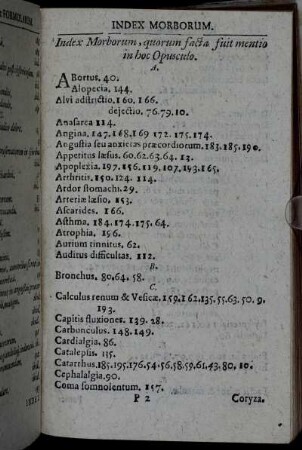 INDEX MORBORUM.
Index Morborum, quorum facta fuit mentio
in hoc Opusculo.
A.
ABortus. 40.
Alopecia, 144.
Alvi adstrictio. 160. 166.
dejectio, 76.79.10.
Anasarca 114.
Angina, 147.168.169 172.175.174.
Angustia seu anxietas præcordiorum. 183.185.190.
Appetitus læsus. 60.62.63.64.13.
Apoplexia. 197.156.119.107.193.165,
Arthritis. 150.124. 114.
Ardor stomachi. 29.
Arteriæ læsio, 153.
Ascarides. 166.
Asthma. 184.174.175.64.
Atrophia. 196.
Aurium tinnitus, 62.
Auditus difficultas. 112.
B.
Bronchus. 80.64.58.
C.
Calculus renum & Vesicæ. 159.162.135.55.63.50.9,
193.
Capitis fluxiones. 139.28.
Carbunculus. 148.149.
Cardialgia, 86.
Catalepsis. 115.
Catarrhus.185.195.176.54.56.58.59.61.43.80.10.
Cephalalgia.90.
Coma somnolentum. 157.
P 2 Coryza.